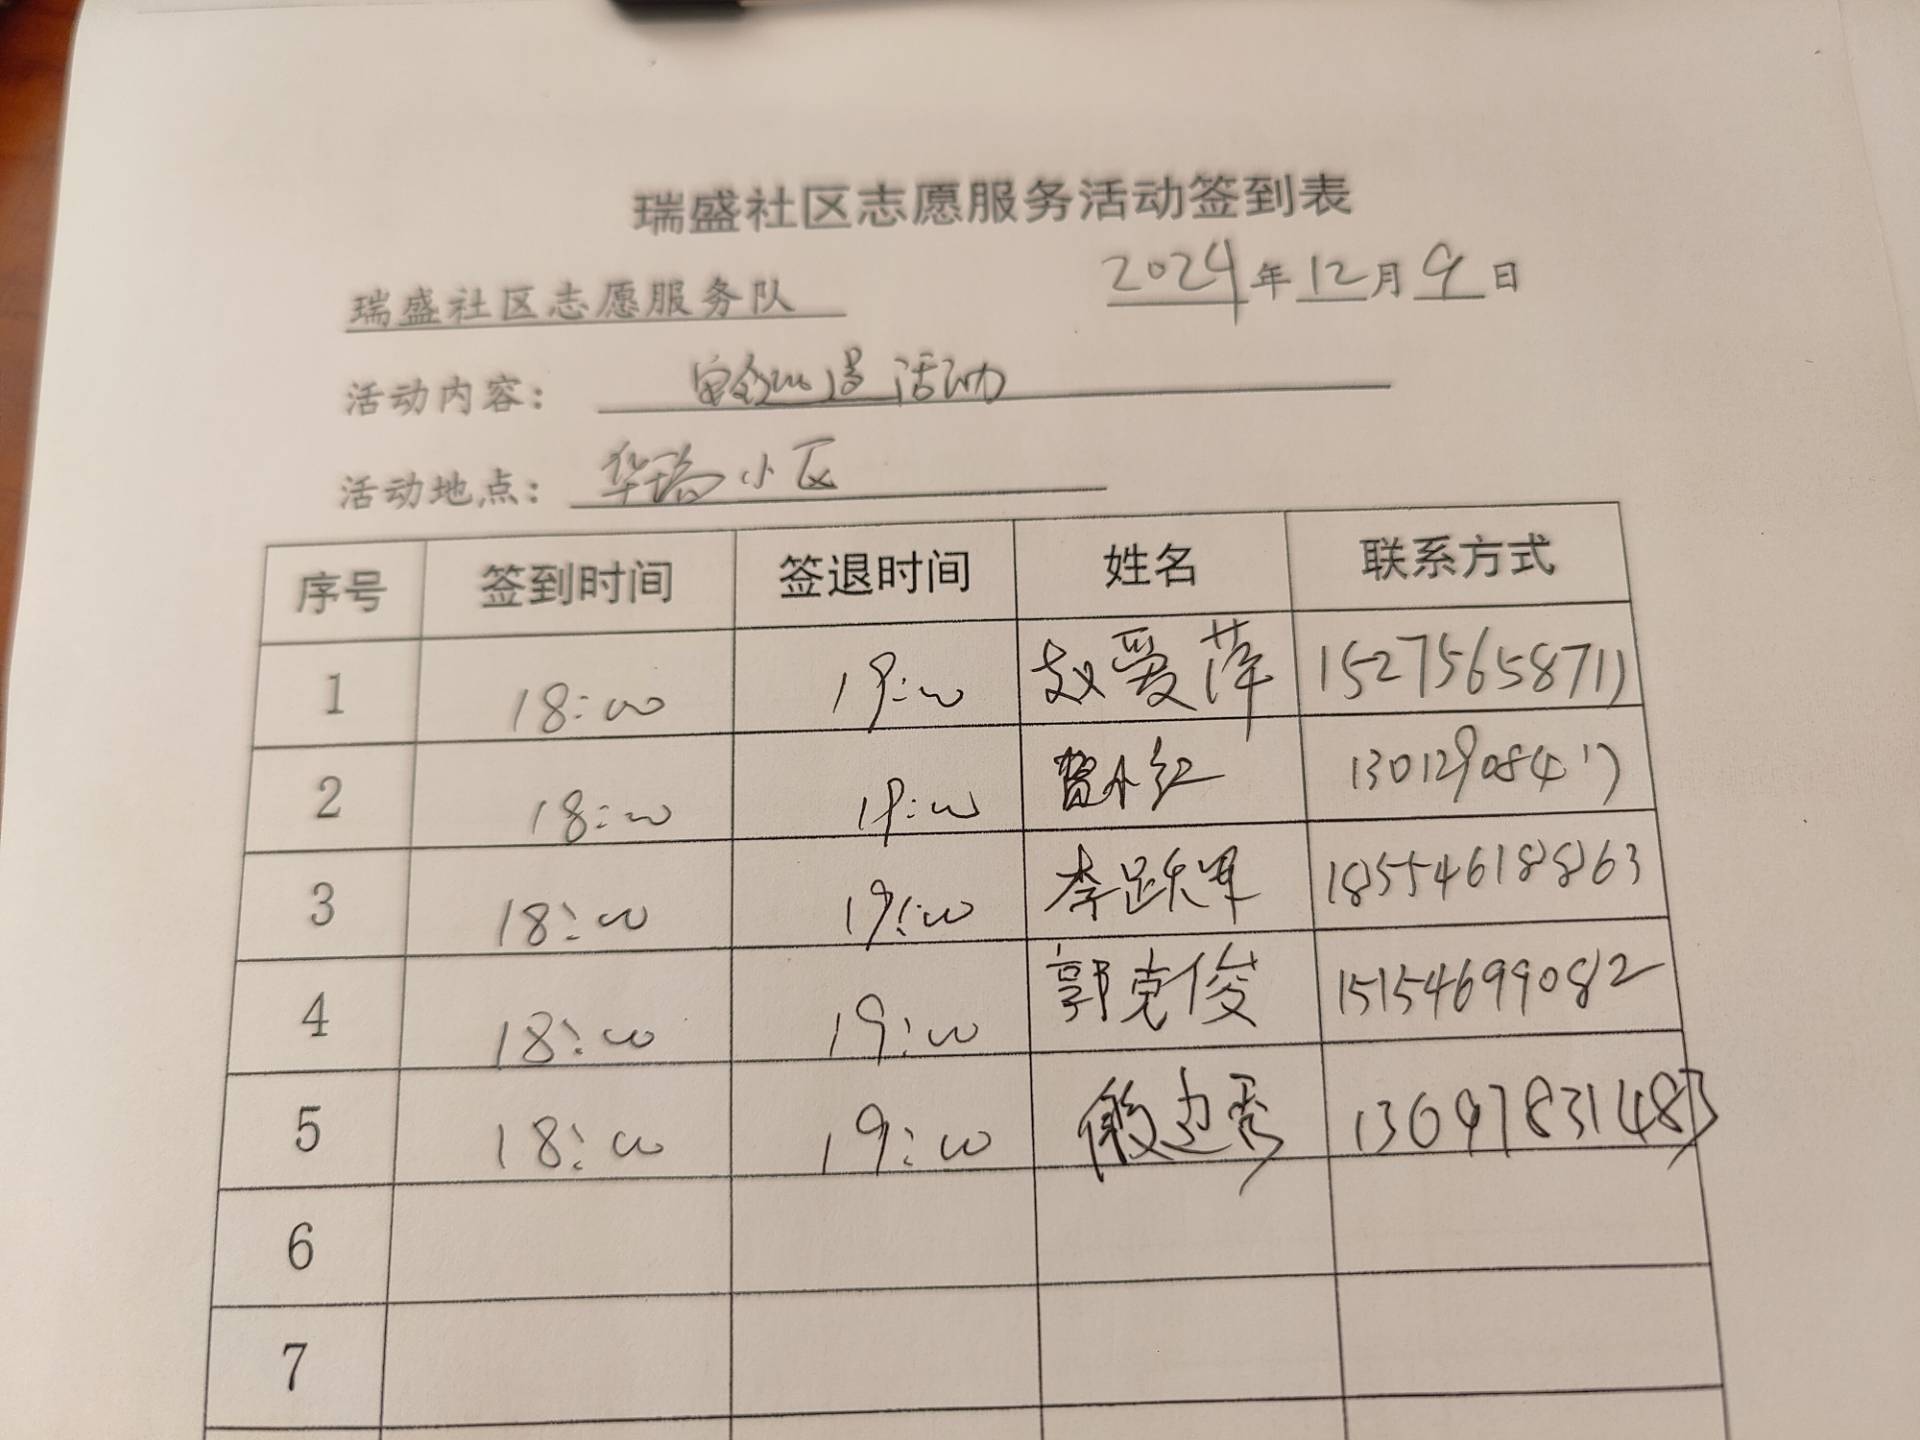 瑞盛社区志愿服务活动签到表
瑞盛社区志愿服务队 2024年12月9日
活动内容: 活动
活动地点: 华瑞小区
序号 签到时间 签退时间 姓名 联系方式
1 18:00 19:00 赵爱萍 15275658711
2 18:00 19:00 小红 13012908417
3 18:00 19:00 李跃军 18554618863
4 18:00 19:00 郭克俊 15154699082
5 18:00 19:00
6
7